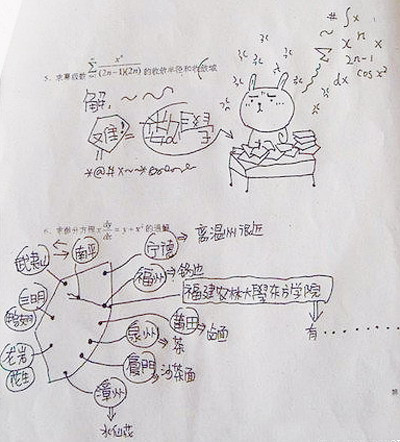 5、求幂级数 $\sum_{n=1}^{\infty} \frac{x^n}{(2n-1)(2n)}$ 的收敛半径和收敛域
# ∫ x
~ x n x
2n-1
dx cos x²
解,
*@#x~~*
6、求微分方程 $x\frac{dy}{dx} = y + x^2$ 的通解
武夷山
南平
宁德→离温州很近
福州→锅边
福建农林大學东方学院
有......
三明
莆田→卤面
泉州→茶
厦門→沙茶面
花生
漳州
水仙花